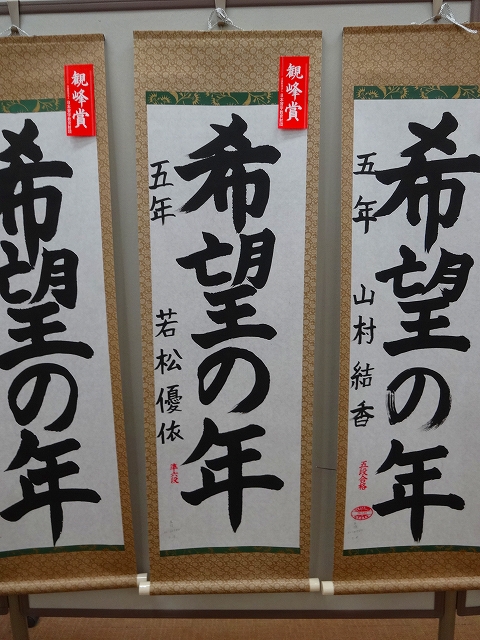 希望の年
五年
山村結香
五段合格
観峰賞
希望の年
五年
若松優依
準六段
観峰賞
希望の年